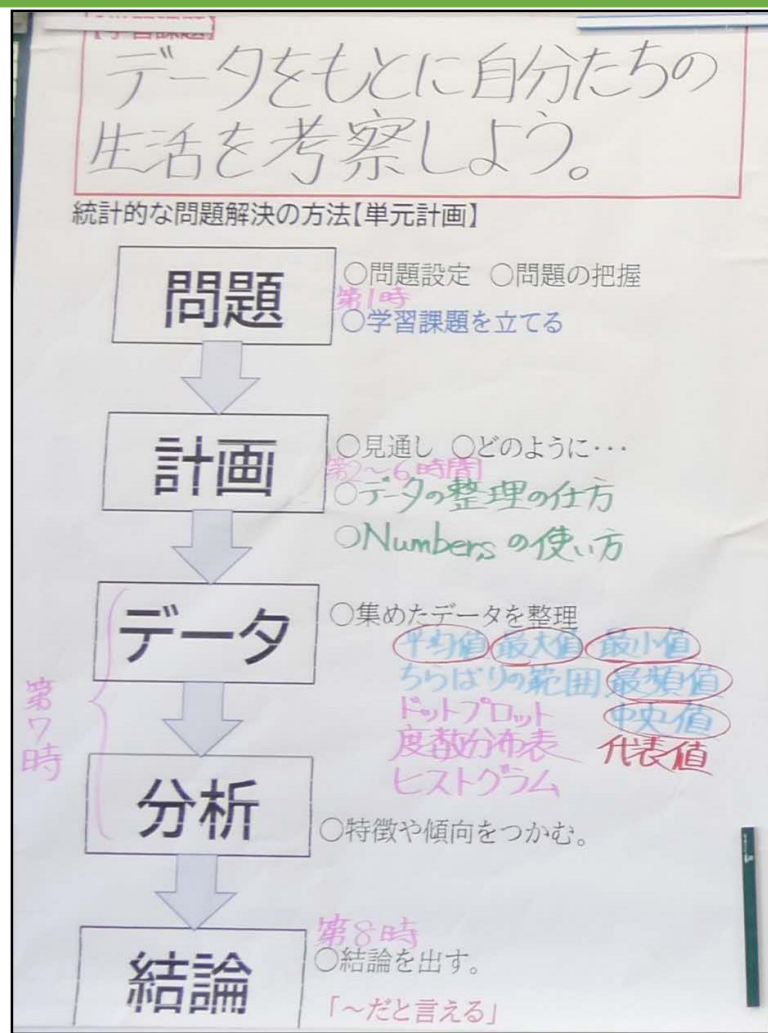 【学習課題】
データをもとに自分たちの
生活を考察しよう。
統計的な問題解決の方法【単元計画】
問題
○問題設定 ○問題の把握
第1時
○学習課題を立てる
計画
○見通し ○どのように・・・
第2~6時間
○データの整理の仕方
○Numbersの使い方
第7時
データ
○集めたデータを整理
平均値 最大値 最小値
ちらばりの範囲 最頻値
ドットプロット 中央値
度数分布表 代表値
ヒストグラム
分析
○特徴や傾向をつかむ。
第8時
結論
○結論を出す。
「~だと言える」